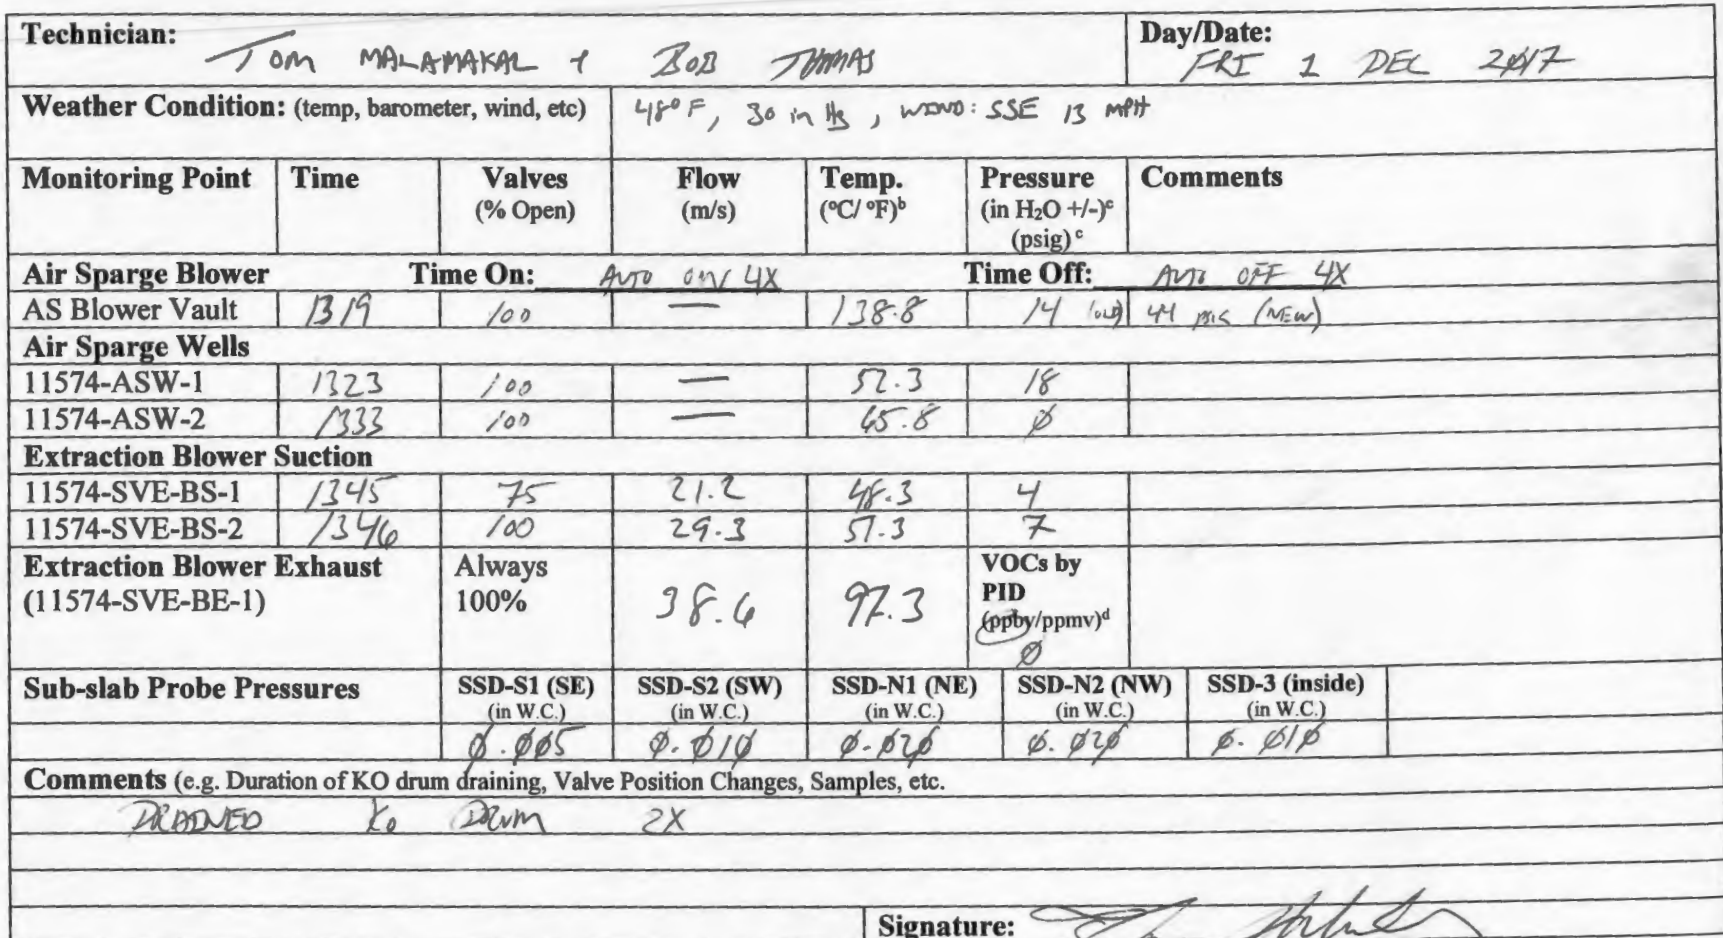 Technician: Day/Date:
TOM MALAMAKAL + BOB THOMAS FRI 1 DEC 2017
Weather Condition: (temp, barometer, wind, etc) 48° F, 30 in Hg, WIND: SSE 13 MPH
Monitoring Point Time Valves Flow Temp. Pressure Comments
(% Open) (m/s) (°C/ °F)ᵇ (in H₂O +/-)ᶜ
(psig) ᶜ
Air Sparge Blower Time On: AUTO ON 4X Time Off: AUTO OFF 4X
AS Blower Vault 1319 100 — 138.8 14 (OLD) 44 psig (NEW)
Air Sparge Wells
11574-ASW-1 1323 100 — 52.3 18
11574-ASW-2 1333 100 — 65.8 0
Extraction Blower Suction
11574-SVE-BS-1 1345 75 21.2 48.3 4
11574-SVE-BS-2 1346 100 29.3 51.3 7
Extraction Blower Exhaust Always VOCs by
(11574-SVE-BE-1) 100% 38.6 97.3 PID
(ppbv/ppmv)ᵈ
0
Sub-slab Probe Pressures SSD-S1 (SE) SSD-S2 (SW) SSD-N1 (NE) SSD-N2 (NW) SSD-3 (inside)
(in W.C.) (in W.C.) (in W.C.) (in W.C.) (in W.C.)
0.005 0.010 0.020 0.020 0.010
Comments (e.g. Duration of KO drum draining, Valve Position Changes, Samples, etc.
DRAINED KO DRUM 2X
Signature: